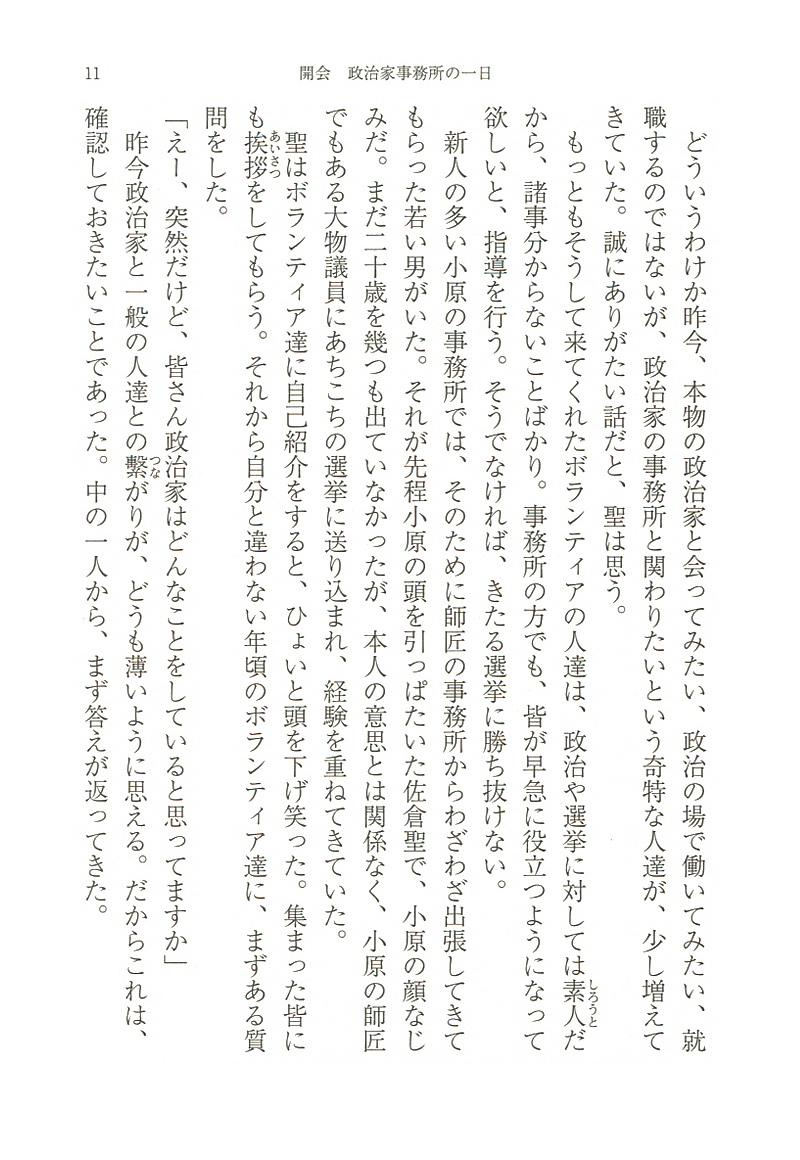 11
開会　政治家事務所の一日
　どういうわけか昨今、本物の政治家と会ってみたい、政治の場で働いてみたい、就
職するのではないが、政治家の事務所と関わりたいという奇特な人達が、少し増えて
きていた。誠にありがたい話だと、聖は思う。
　もっともそうして来てくれたボランティアの人達は、政治や選挙に対しては素人だ
しろうと
から、諸事分からないことばかり。事務所の方でも、皆が早急に役立つようになって
欲しいと、指導を行う。そうでなければ、きたる選挙に勝ち抜けない。
　新人の多い小原の事務所では、そのために師匠の事務所からわざわざ出張してきて
もらった若い男がいた。それが先程小原の頭を引っぱたいた佐倉聖で、小原の顔なじ
みだ。まだ二十歳を幾つも出ていなかったが、本人の意思とは関係なく、小原の師匠
でもある大物議員にあちこちの選挙に送り込まれ、経験を重ねてきていた。
　聖はボランティア達に自己紹介をすると、ひょいと頭を下げ笑った。集まった皆に
も挨拶をしてもらう。それから自分と違わない年頃のボランティア達に、まずある質
あいさつ
問をした。
「えー、突然だけど、皆さん政治家はどんなことをしていると思ってますか」
　昨今政治家と一般の人達との繫がりが、どうも薄いように思える。だからこれは、
つな
確認しておきたいことであった。中の一人から、まず答えが返ってきた。